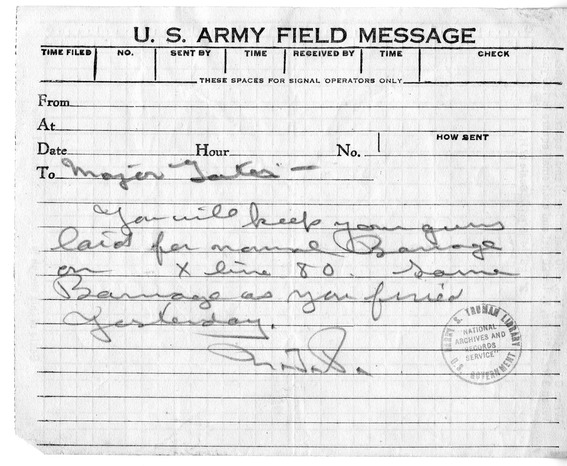 U. S. ARMY FIELD MESSAGE
TIME FILED NO. SENT BY TIME RECEIVED BY TIME CHECK
THESE SPACES FOR SIGNAL OPERATORS ONLY
From
At
Date Hour No. HOW SENT
To Major
You will keep your guns
laid for normal Barrage
on X line 80. Same
Barrage as you
Yesterday.
HARRY S. TRUMAN LIBRARY
NATIONAL
ARCHIVES AND
RECORDS
SERVICE
U.S. GOVERNMENT